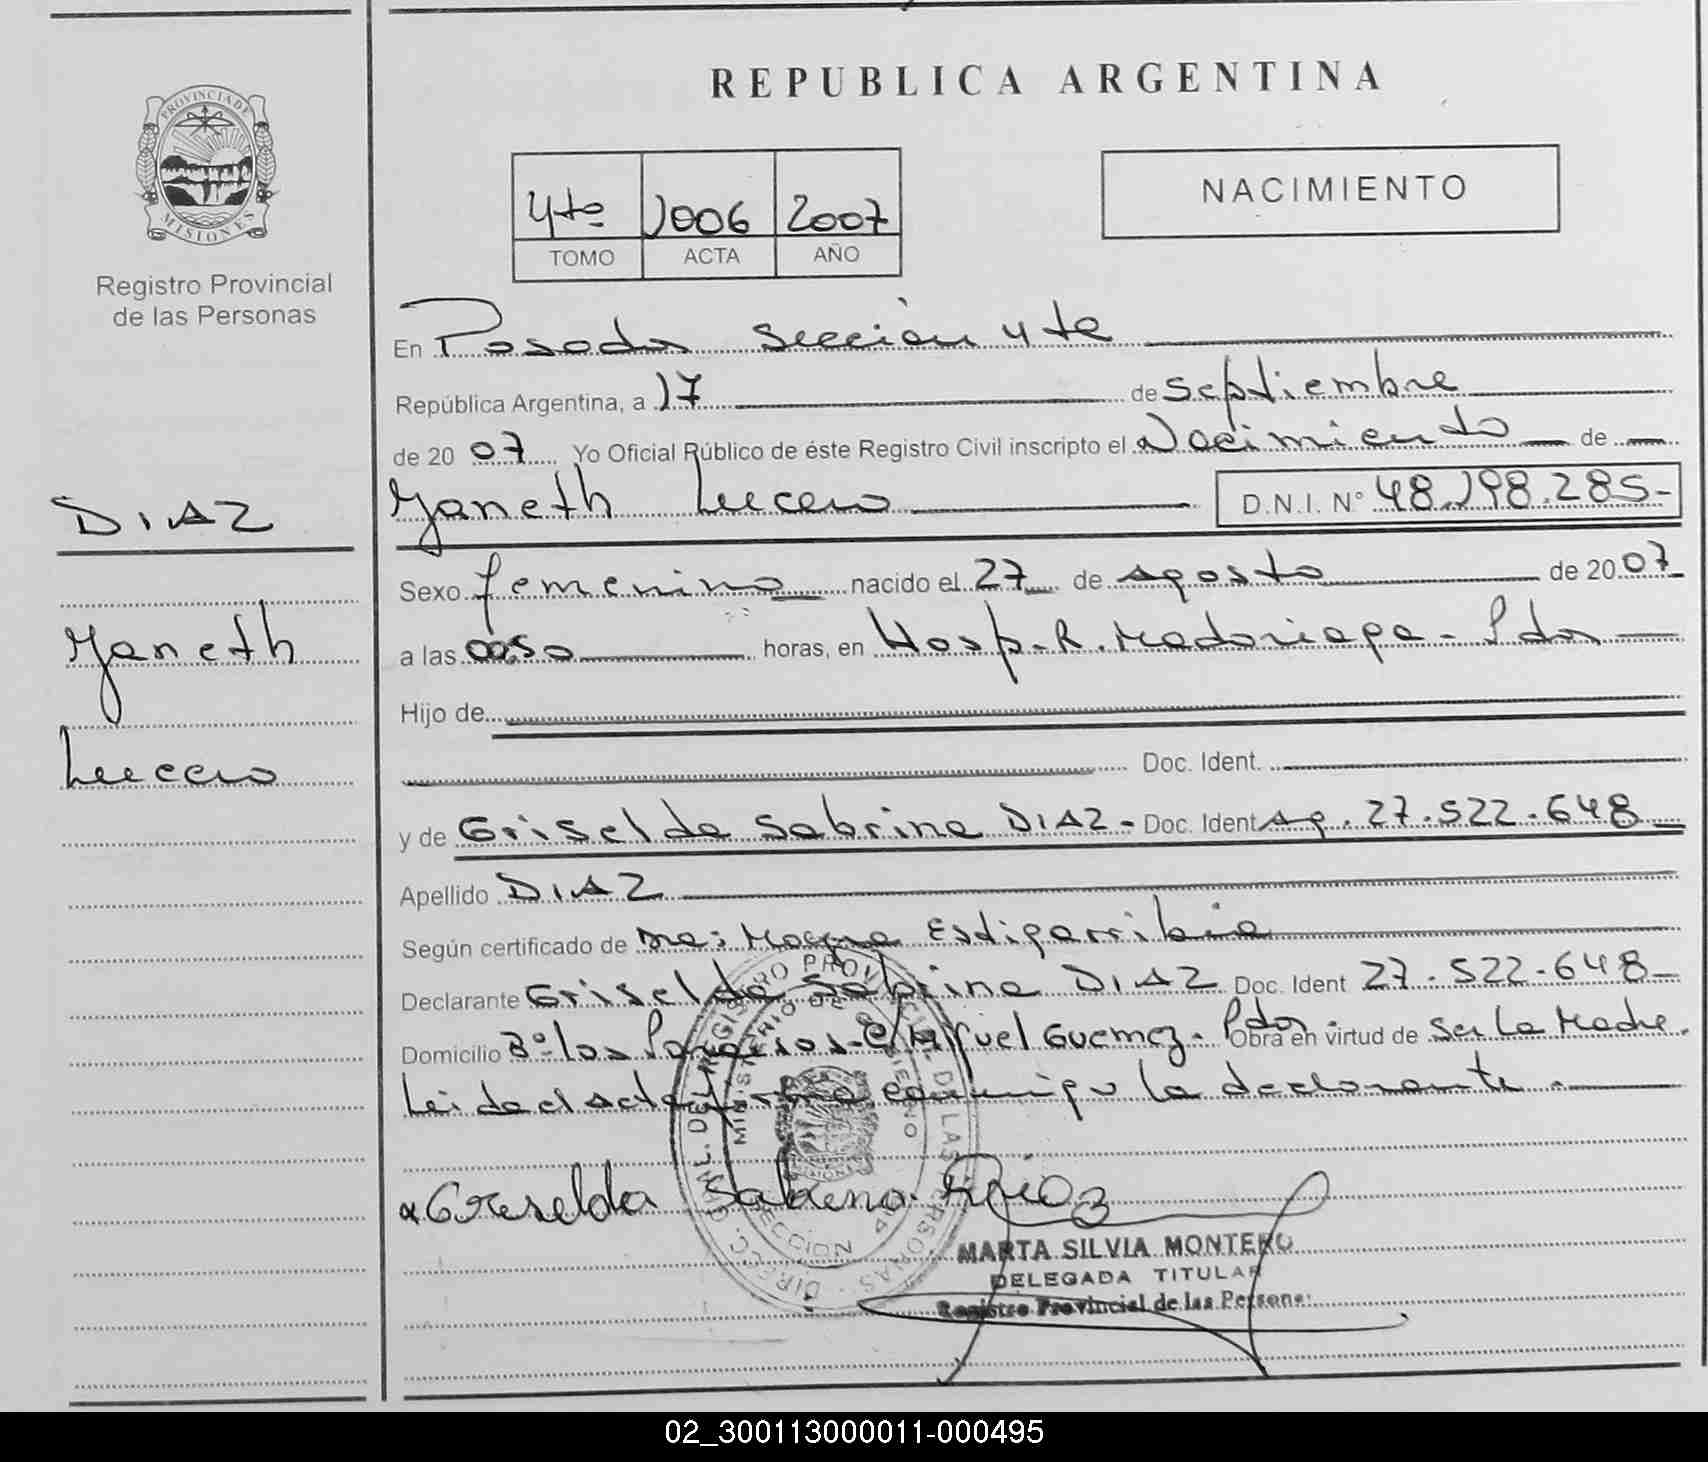 REPUBLICA ARGENTINA
PROVINCIA DE
MISIONES
Registro Provincial
de las Personas
4to 1006 2007
TOMO ACTA AÑO
NACIMIENTO
En Posadas Sección 4ta
República Argentina, a 17 de Septiembre
de 2007 Yo Oficial Público de éste Registro Civil inscripto el Nacimiento de
DIAZ
Yaneth Lucero D.N.I. N° 48.198.285-
Sexo femenino nacido el 27 de agosto de 2007
Yaneth
a las 00:50 horas, en Hosp. R. Madariaga - Pdas
Hijo de
Lucero
Doc. Ident.
y de Griselda Sabrina DIAZ - Doc. Ident Ag. 27.522.648
Apellido DIAZ
Según certificado de Estigarribia
Declarante Griselda Sabrina DIAZ Doc. Ident 27.522.648
Domicilio Bº los Paraisos - C/ Miguel Guemez. Pdas. Obra en virtud de ser la Madre.
Leida el acta firma conmigo la declarante.
Griselda Sabrina Diaz
DIREC. GRAL. DEL REGISTRO PROVINCIAL DE LAS PERSONAS
MINISTERIO DE GOBIERNO
MARTA SILVIA MONTERO
DELEGADA TITULAR
Registro Provincial de las Personas
02_300113000011-000495